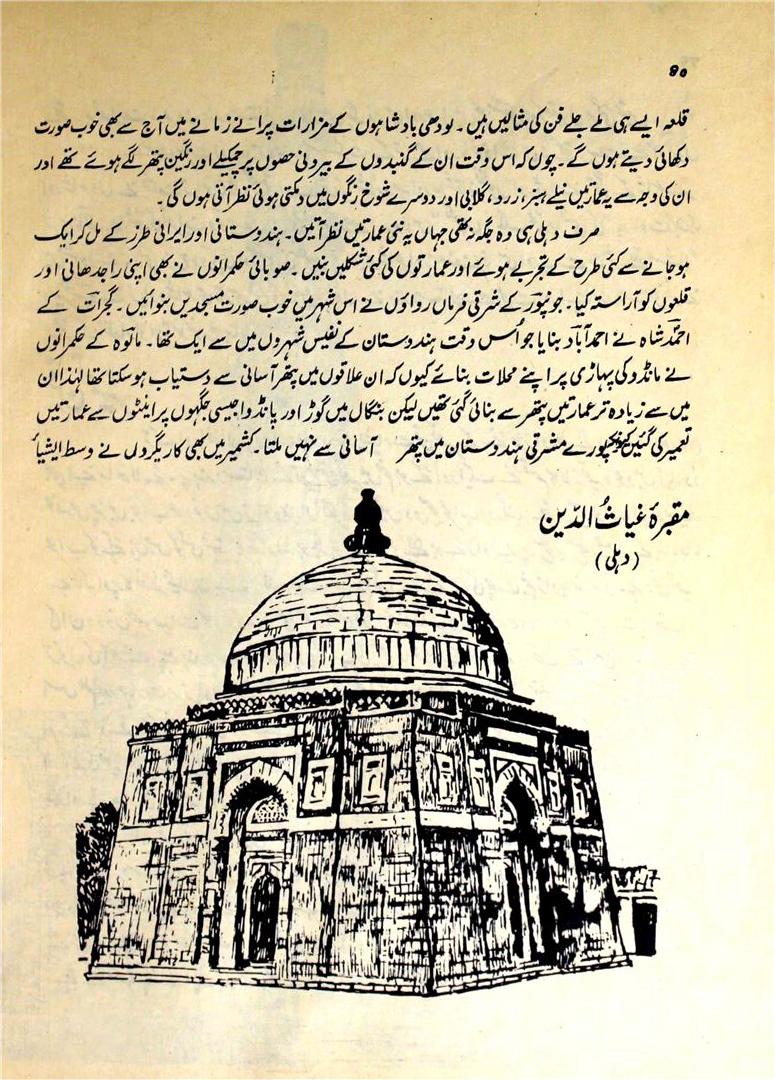 ۹۰
قلعہ ایسے ہی ملے جلے فن کی مثالیں ہیں ۔ لودھی بادشاہوں کے مزارات پرانے زمانے میں آج سے بھی خوب صورت
دکھائی دیتے ہوں گے ۔ چوں کہ اس وقت ان کے گنبدوں کے بیرونی حصوں پر چمکیلے اور رنگین پتھر لگے ہوئے تھے اور
ان کی وجہ سے یہ عمارتیں نیلے، سبز، زرد، گلابی اور دوسرے شوخ رنگوں میں دمکتی ہوئی نظر آتی ہوں گی ۔
صرف دہلی ہی وہ جگہ نہ تھی جہاں یہ نئی عمارتیں نظر آتیں ۔ ہندوستانی اور ایرانی طرز کے مل کر ایک
ہو جانے سے کئی طرح کے تجربے ہوئے اور عمارتوں کی کئی شکلیں بنیں ۔ صوبائی حکمرانوں نے بھی اپنی راجدھانی اور
قلعوں کو آراستہ کیا ۔ جونپور کے شرقی فرماں رواؤں نے اس شہر میں خوب صورت مسجدیں بنوائیں ۔ گجرات کے
احمد شاہ نے احمد آباد بنایا جو اُس وقت ہندوستان کے نفیس شہروں میں سے ایک تھا ۔ مالوہ کے حکمرانوں
نے مانڈو کی پہاڑی پر اپنے محلات بنائے کیوں کہ ان علاقوں میں پتھر آسانی سے دستیاب ہو سکتا تھا لہٰذا ان
میں سے زیادہ تر عمارتیں پتھر سے بنائی گئی تھیں لیکن بنگال میں گوڑ اور پانڈوا جیسی جگہوں پر اینٹوں سے عمارتیں
تعمیر کی گئیں کیونکہ پورے مشرقی ہندوستان میں پتھر آسانی سے نہیں ملتا ۔ کشمیر میں بھی کاریگروں نے وسط ایشیا
مقبرۂ غیاثُ الدّین
(دہلی)